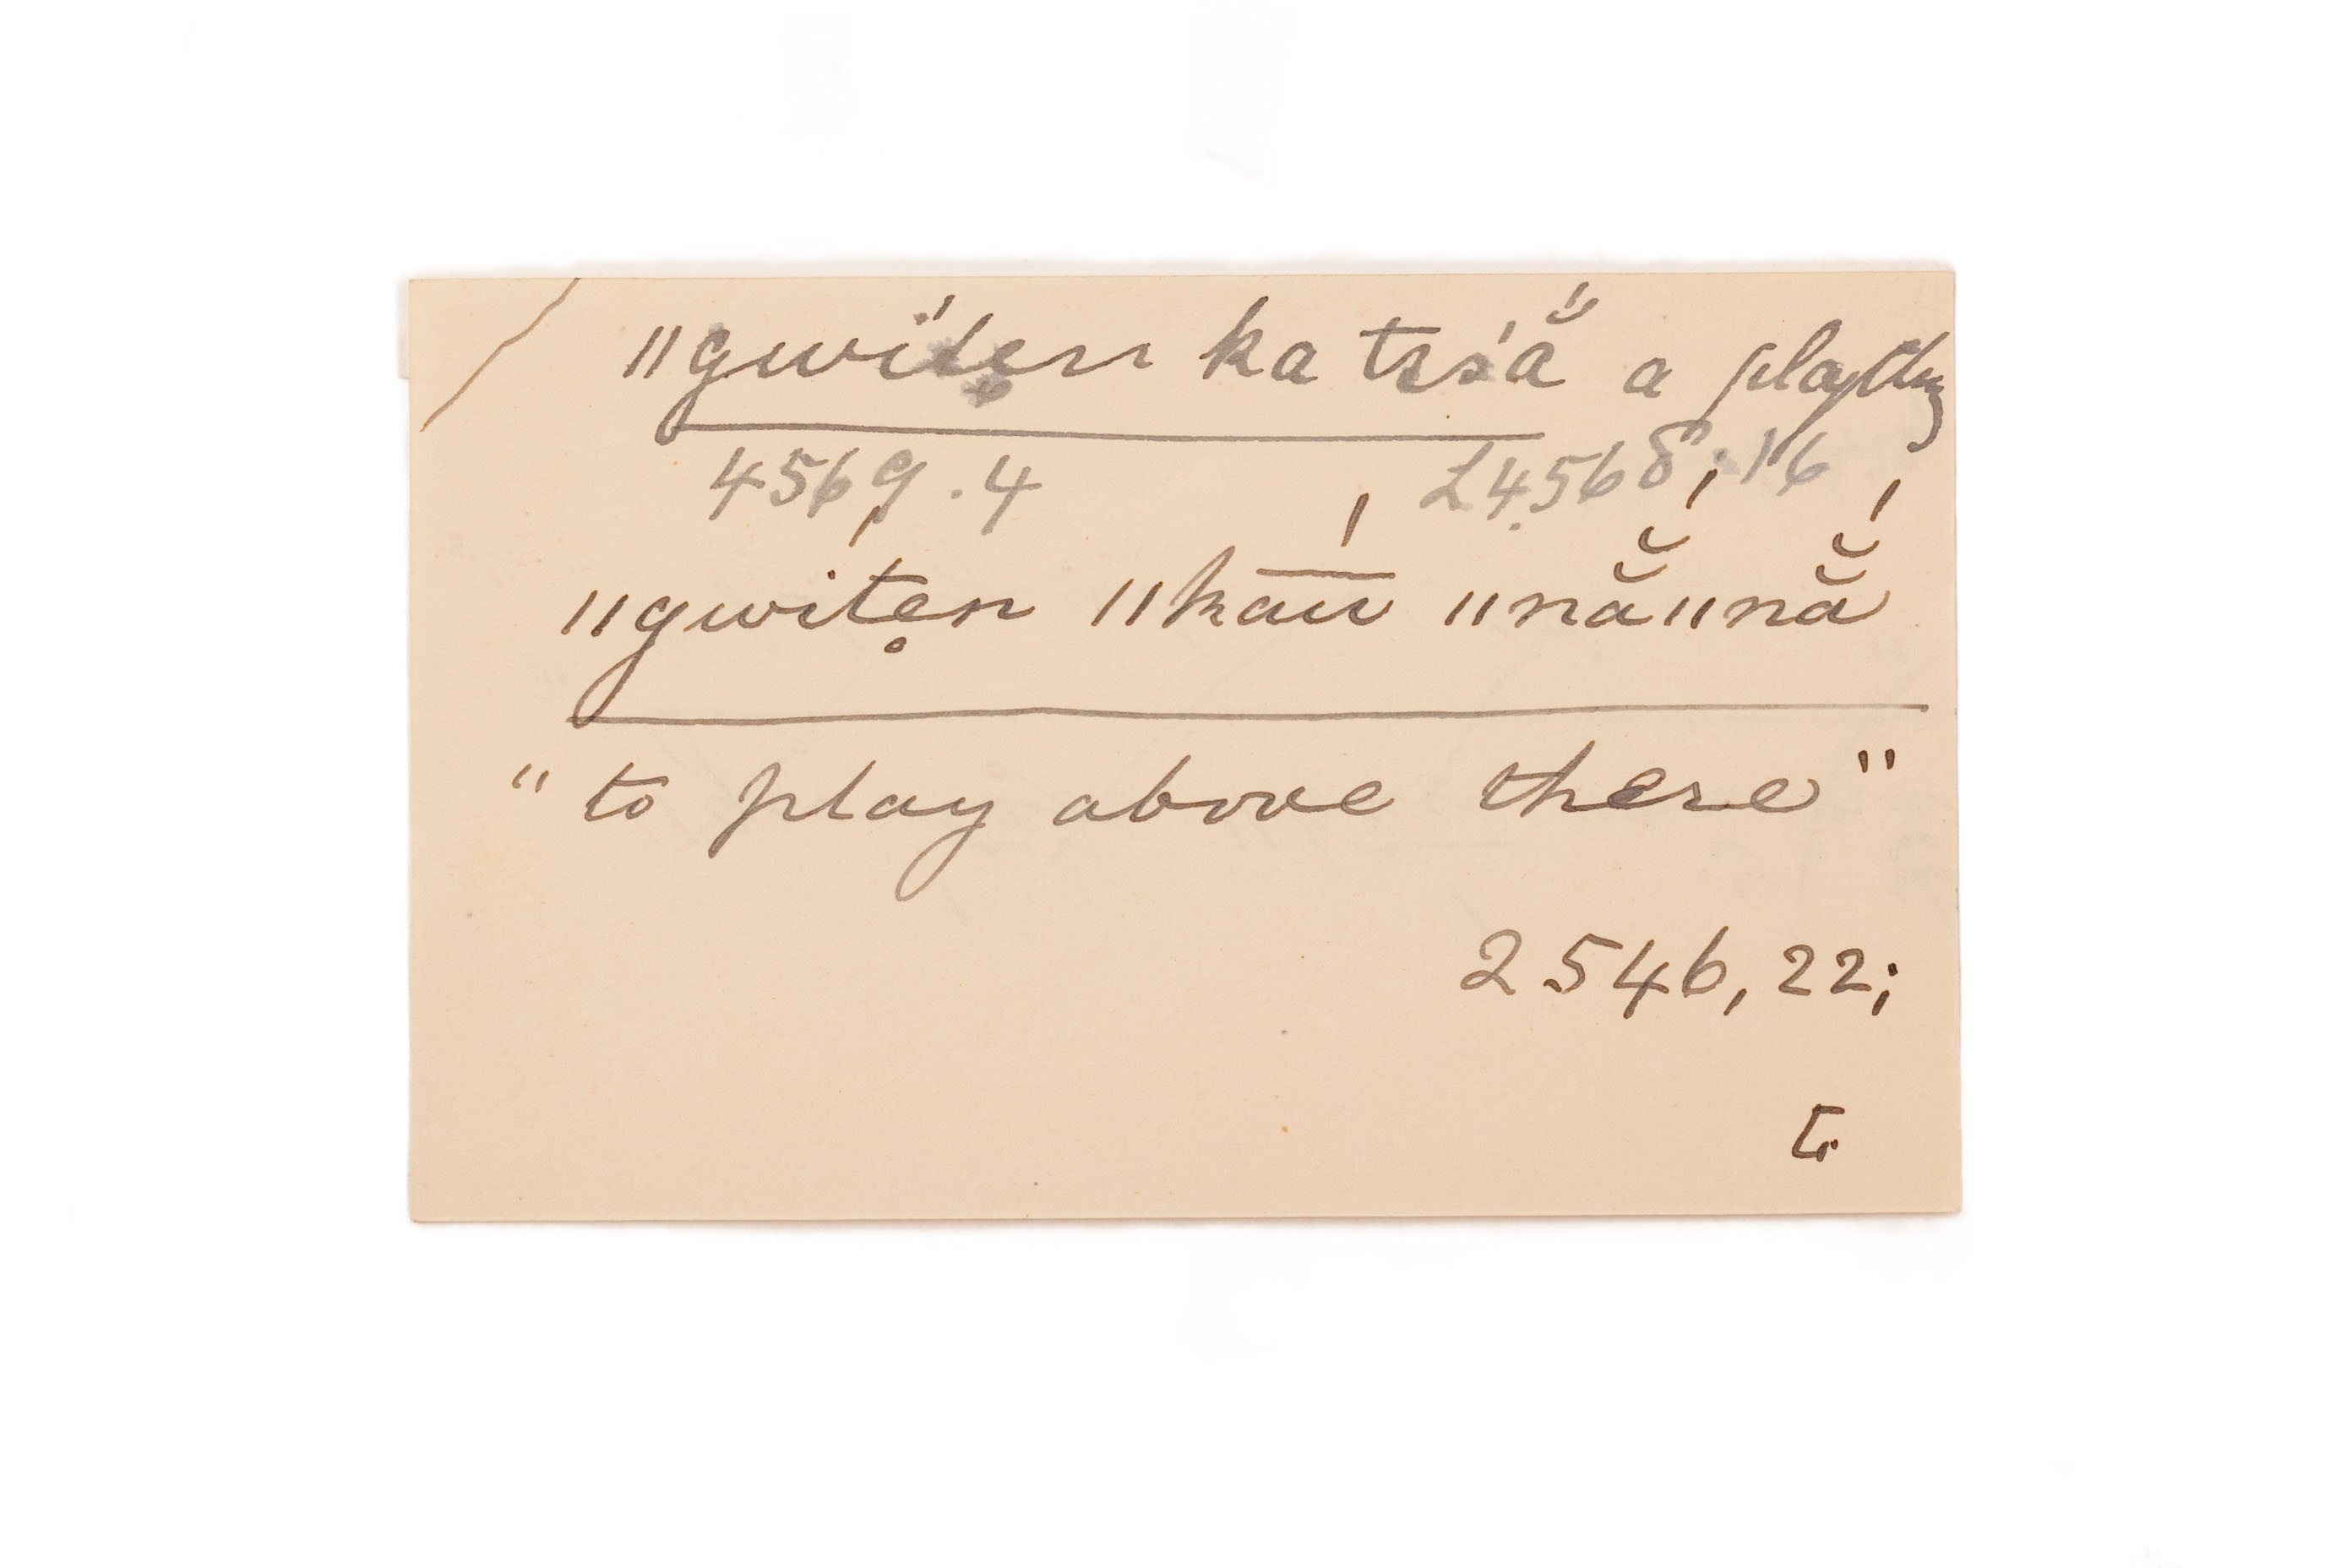 "gwíten ka tsı̆ă a plaything
4569.4 L4568.16
"gwíte̥n "kaū́ "nắ"nắ
"to play above there"
2546, 22;